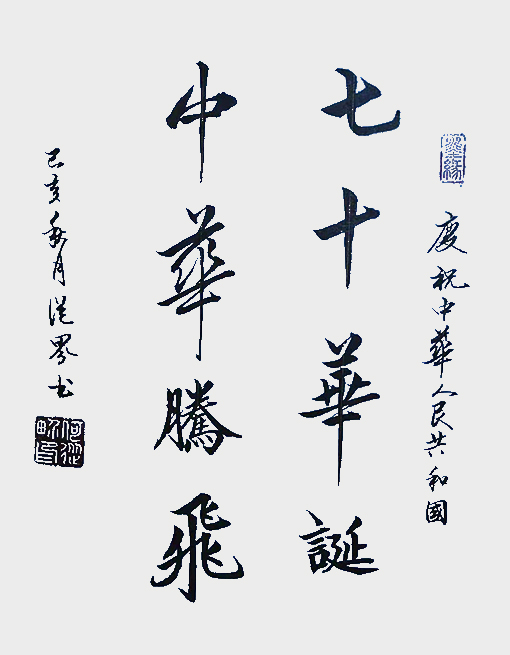 慶祝中華人民共和國
七十華誕
中華騰飛
己亥秋月從界书